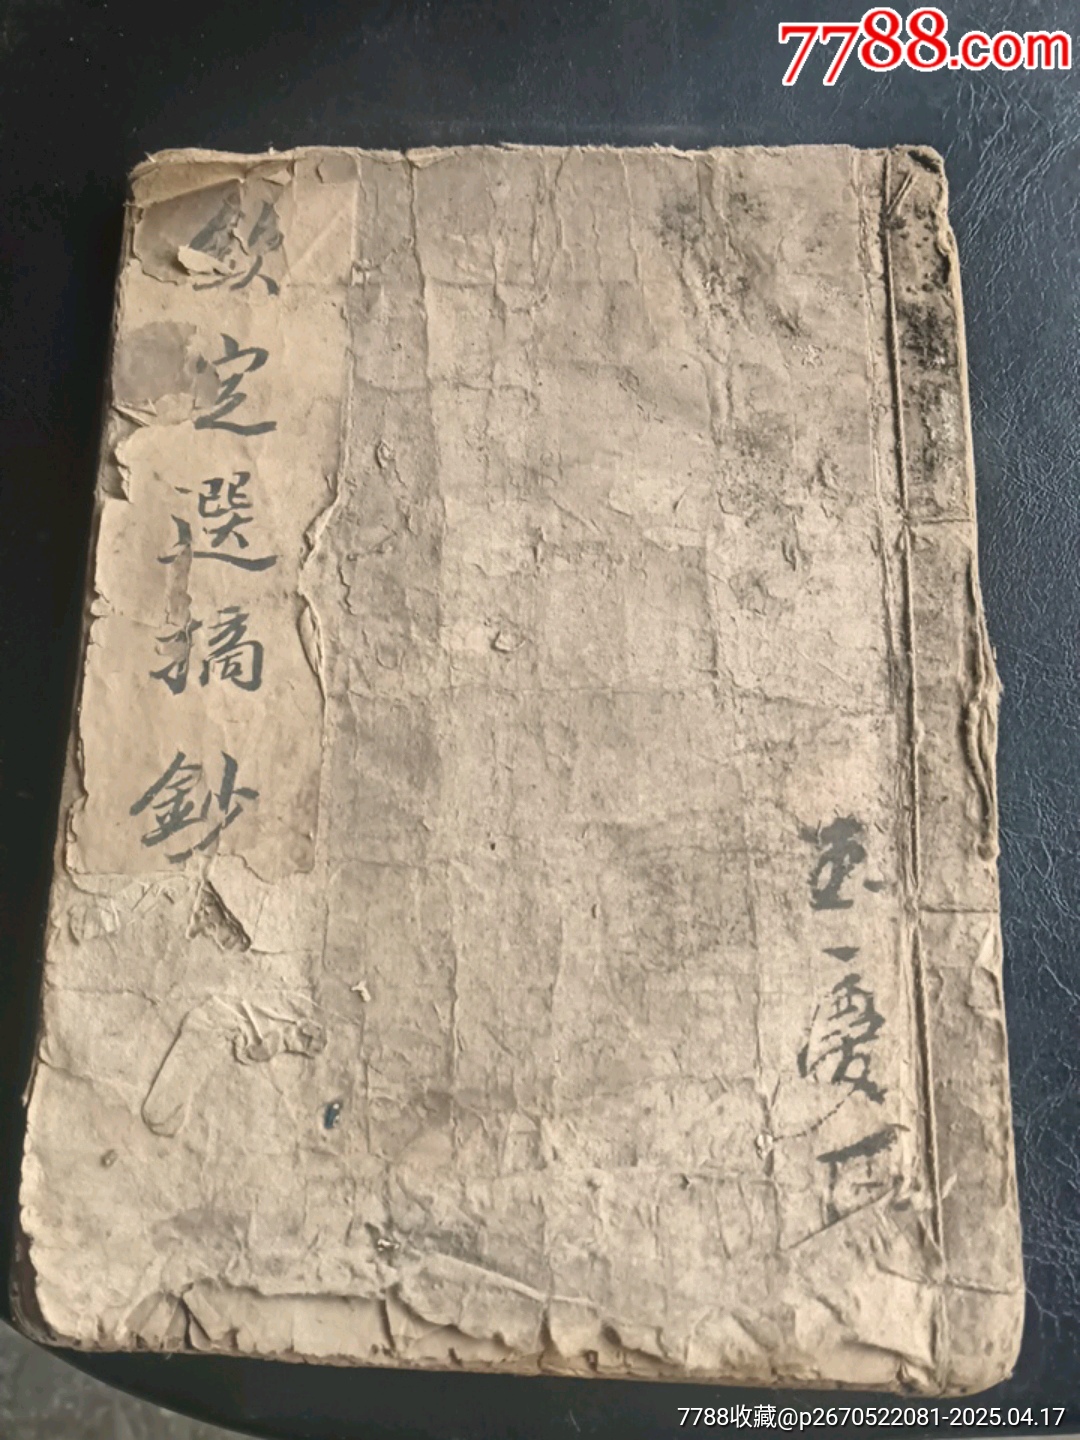 7788.com
欽定選摘鈔
玉慶
7788收藏@p2670522081-2025.04.17